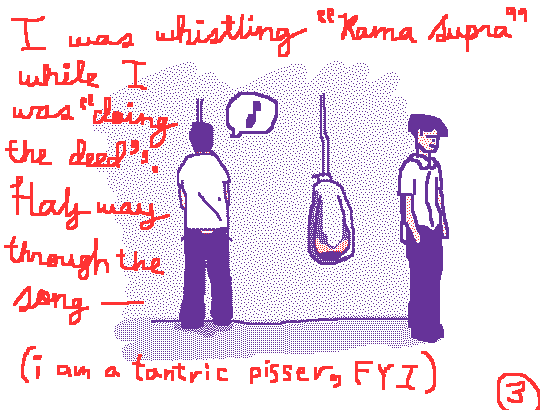 I was whistling "Kama Supra"
while I
was "doing
the deed".
Half way
through the
song —
(i am a tantric pisser, FYI)
3